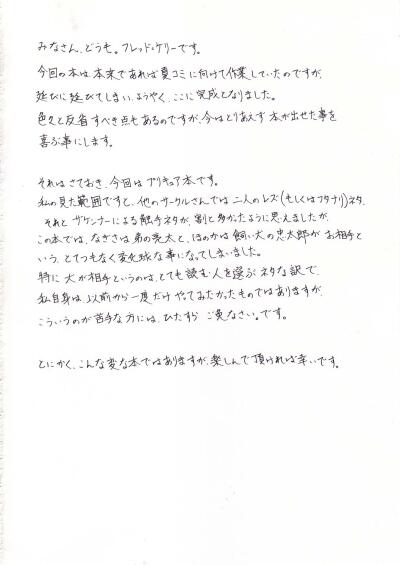 みなさん、どうも。フレッド・ケリーです。
今回の本は本来であれば夏コミに向けて作業していたのですが、
延びに延びてしまい、ようやく、ここに完成となりました。
色々と反省すべき点もあるのですが、今はとりあえず本が出せた事を
喜ぶ事にします。
それはさておき、今回はプリキュア本です。
私の見た範囲ですと、他のサークルさんでは二人のレズ(もしくはフタナリ)ネタ、
それとザケンナーによる触手ネタが、割と多かったように思えましたが、
この本では、なぎさは弟の亮太と、ほのかは飼い犬の忠太郎がお相手と
いう、とてつもなく変化球な事になってしまいました。
特に犬が相手というのは、とても読む人を選ぶネタな訳で、
私自身は、以前から一度だけやってみたかったものではありますが、
こういうのが苦手な方には、ひたすらご免なさい。です。
とにかく、こんな変な本ではありますが、楽しんで頂ければ幸いです。